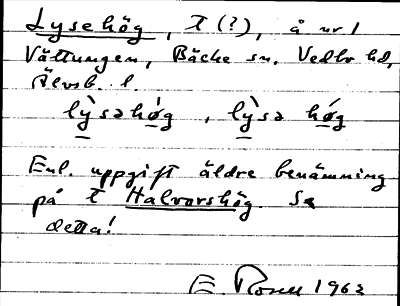 Lysehög, T (?), å nr 1
Vättungen, Bäcke sn. Vedbo hd,
Älvsb. l.
lỳsəhög, lỳsə hög
Enl. uppgift äldre benämning
på T Halvorshög. Se
detta!
E. Rosell 1962